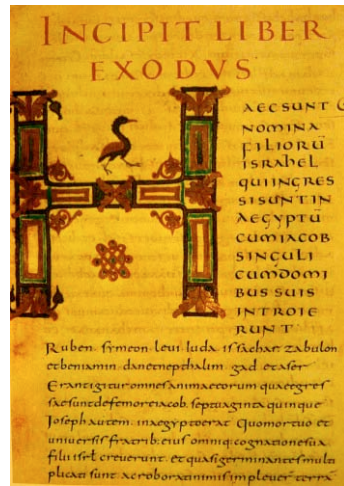 INCIPIT LIBER
EXODVS
H
AEC SUNT
NOMINA
FILIORŪ
ISRAHEL
QUI INGRES
SI SUNT IN
AEGYPTŪ
CUM IACOB
SINGULI
CUM DOMI
BUS SUIS
INTROIE
RUNT
Ruben. symeon. leui. iuda. issachar. zabulon
et beniamin. dan et nepthalim. gad. et aser
Erant igitur omnes animae eorum quae egres
sae sunt de femore iacob. septuaginta quinque
Ioseph autem. in aegypto erat Quo mortuo et
uniuersis fratrib; eius omniq; cognatione sua
filii isrl creuerunt. et quasi germinantes multi
plicati sunt. ac roborati nimis impleuer terrā